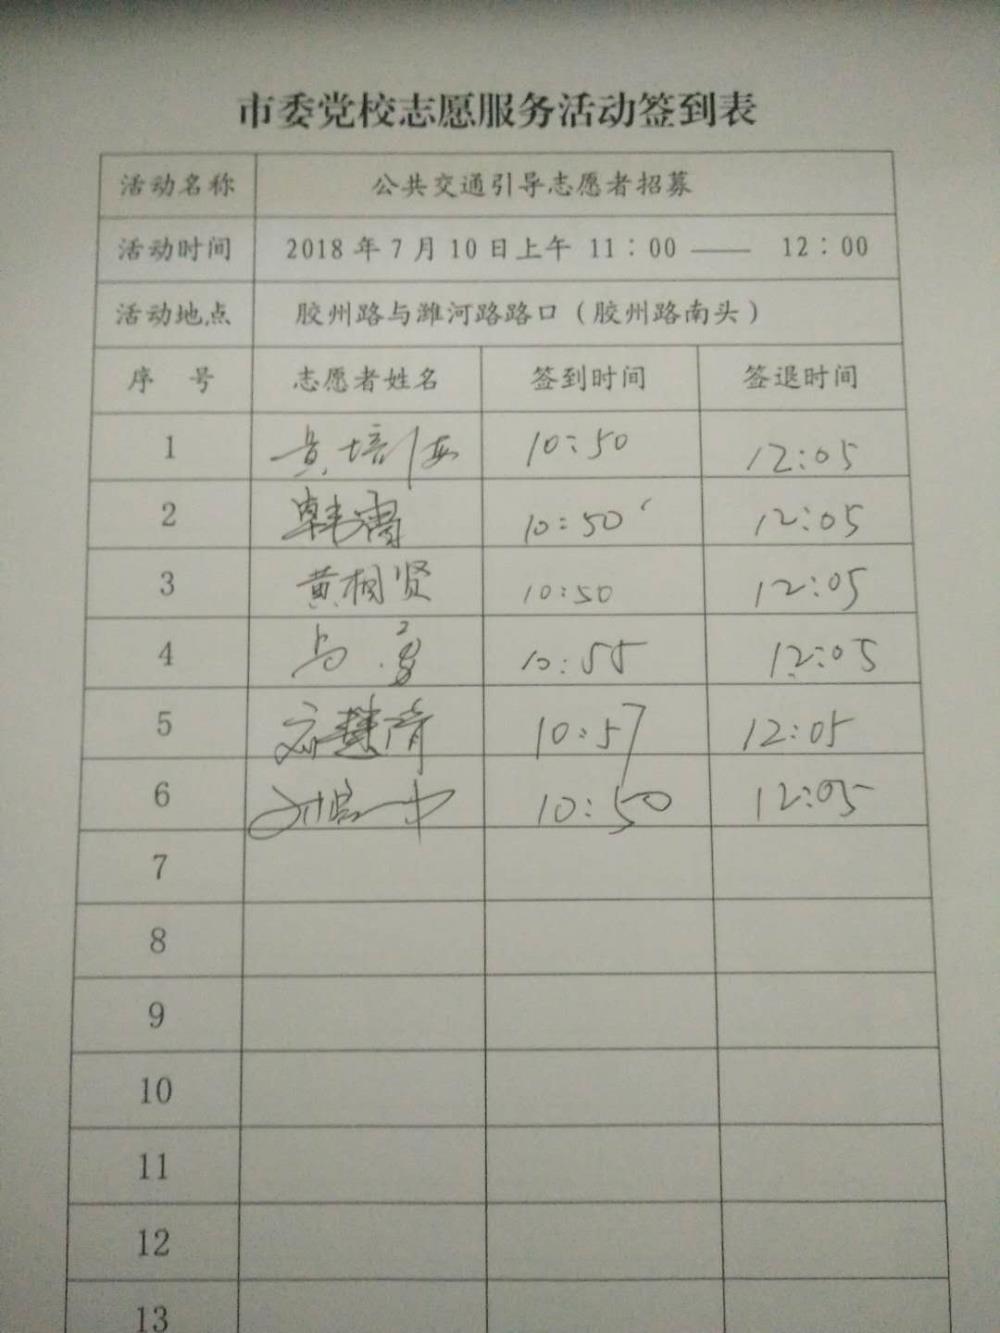 市委党校志愿服务活动签到表
活动名称 公共交通引导志愿者招募
活动时间 2018年7月10日上午 11：00 —— 12：00
活动地点 胶州路与潍河路路口（胶州路南头）
序 号 志愿者姓名 签到时间 签退时间
1 黄培海 10:50 12:05
2 韩 10:50 12:05
3 黄桐贤 10:50 12:05
4 10:55 12:05
5 10:57 12:05
6 10:50 12:05
7
8
9
10
11
12
13